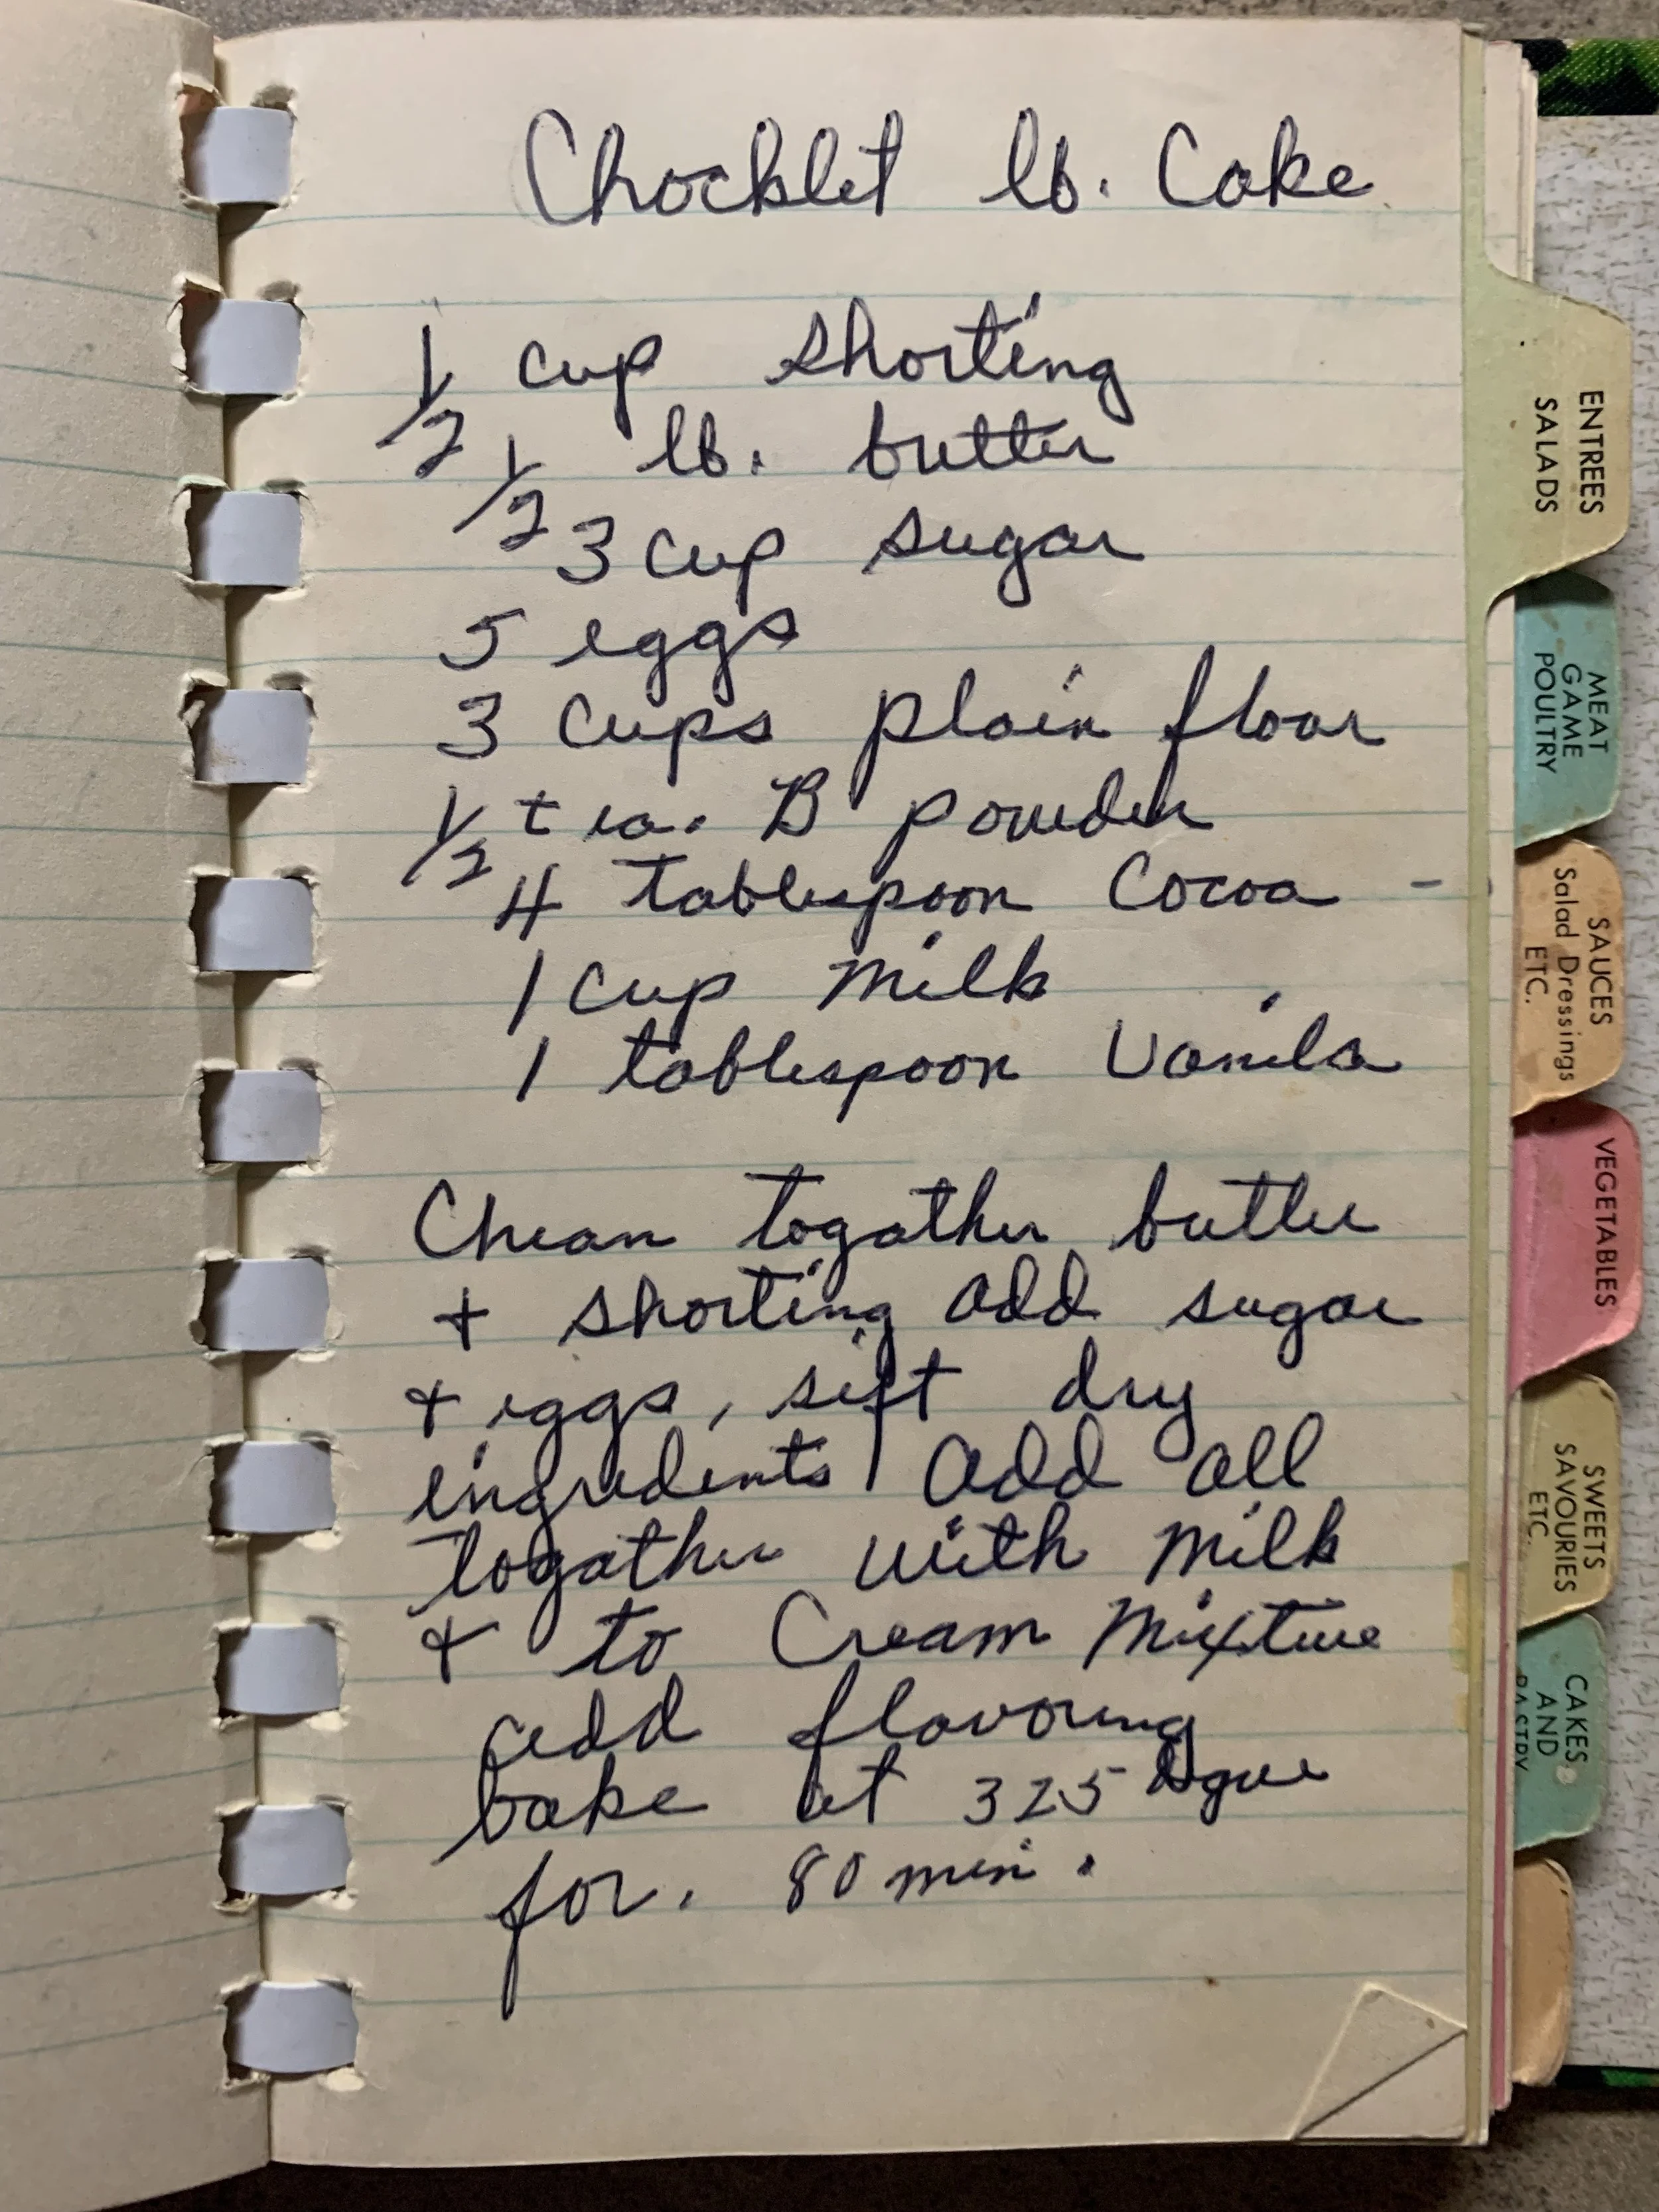 Chocklet lb. Cake
1/2 cup shorting
1/2 lb. butter
3 cup sugar
5 eggs
3 cups plain floar
1/2 tea. B powder
4 tablespoon Cocoa -
1 cup milk
1 tablespoon Vanila
Cream togather butter
+ shorting add sugar
+ eggs, sift dry
ingredents add all
togather with milk
+ to Cream Mixture
add flavoring
bake at 325 degree
for. 80 min.
ENTREES
SALADS
MEAT
GAME
POULTRY
SAUCES
Salad Dressings
ETC.
VEGETABLES
SWEETS
SAVOURIES
ETC.
CAKES
AND
PASTRY